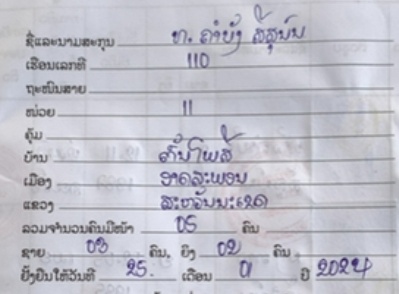 ຊື່ແລະນາມສະກຸນ ທ. ຄຳບັງ ສີສຸນົນ
ເຮືອນເລກທີ 110
ຖະໜົນສາຍ
ໜ່ວຍ 11
ຄຸ້ມ
ບ້ານ ຕົ້ນໂພສີ
ເມືອງ ອາດສະພອນ
ແຂວງ ສະຫວັນນະເຂດ
ລວມຈຳນວນຄົນມີໜ້າ 05 ຄົນ
ຊາຍ 03 ຄົນ, ຍິງ 02 ຄົນ
ຢັ້ງຢືນໃຫ້ວັນທີ 25. ເດືອນ 01 ປີ 2024